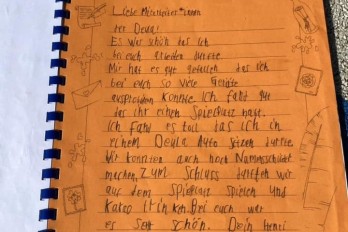 Liebe Mitarbeiter*innen
der Deula!
Es war schön das ich
bei euch arbeiten durfte
Mir hat es gut gefallen das ich
bei euch so viele Geräte
ausprobiren konnte. Ich fand gut
das ihr einen Spielplatz habt.
Ich fand es toll das ich in
einem Deula Auto sitzen durfte.
Wir konnten auch noch Namensschilder
machen. Zum Schluss durften wir
auf dem Spielplatz spielen und
Kakao trinken. Bei euch war
es sehr schön. Dein Henri